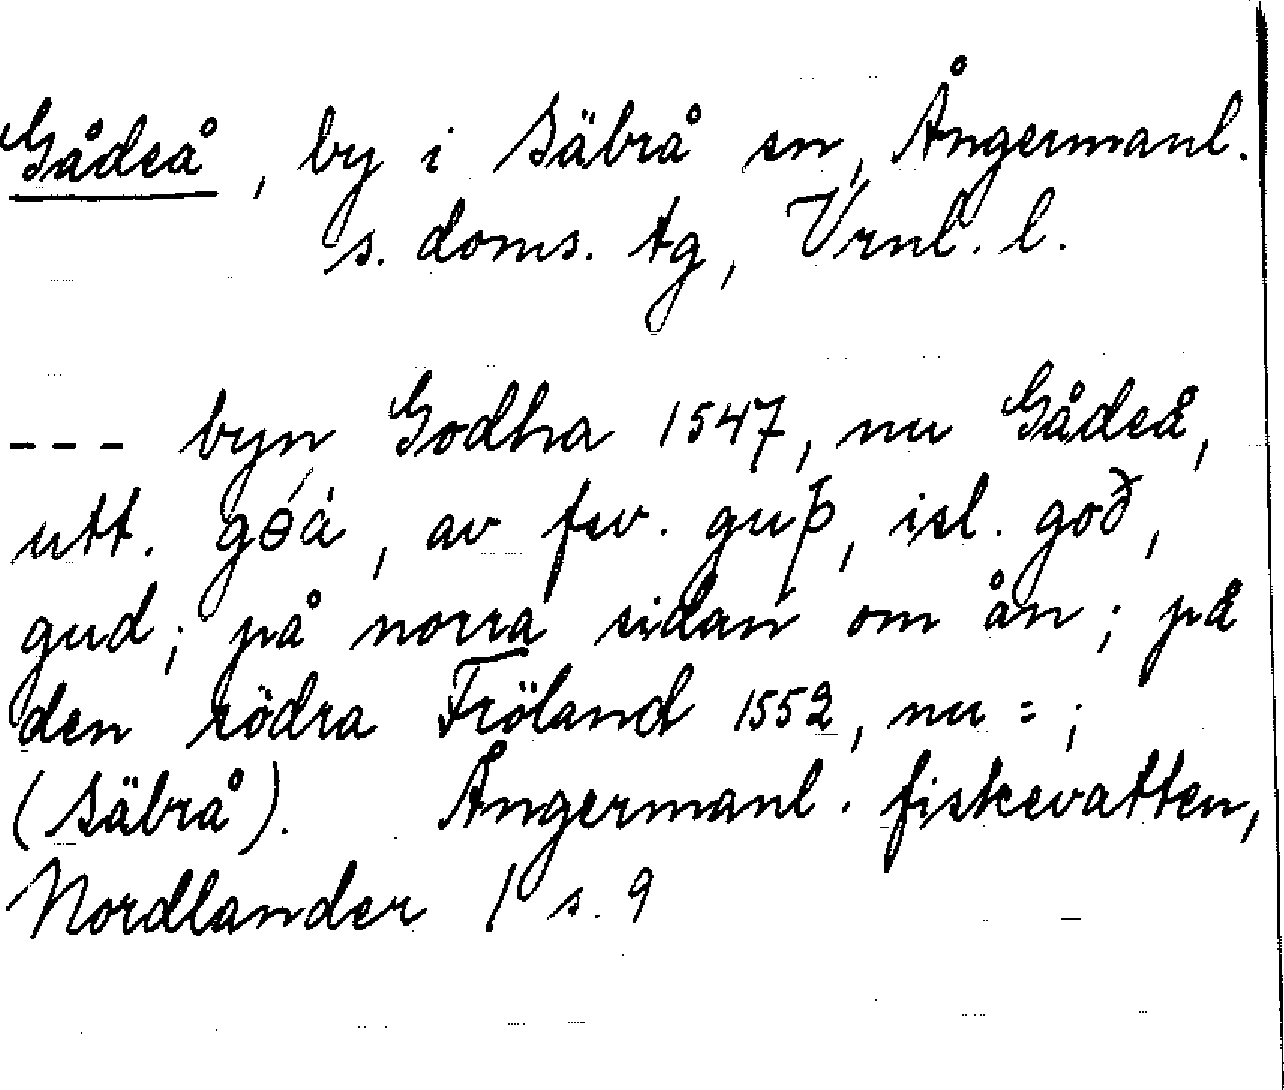 Gådeå, by i Säbrå sn, Ångermanl.
s. doms. tg, Vrnl. l.
--- byn Godha 1547, nu Gådeå,
utt. gǿà, av fsv. guþ, isl. goð,
gud; på norra sidan om ån; på
den södra Fröland 1552, nu =;
(Säbrå). Ångermanl. fiskevatten,
Nordlander 1 s. 9